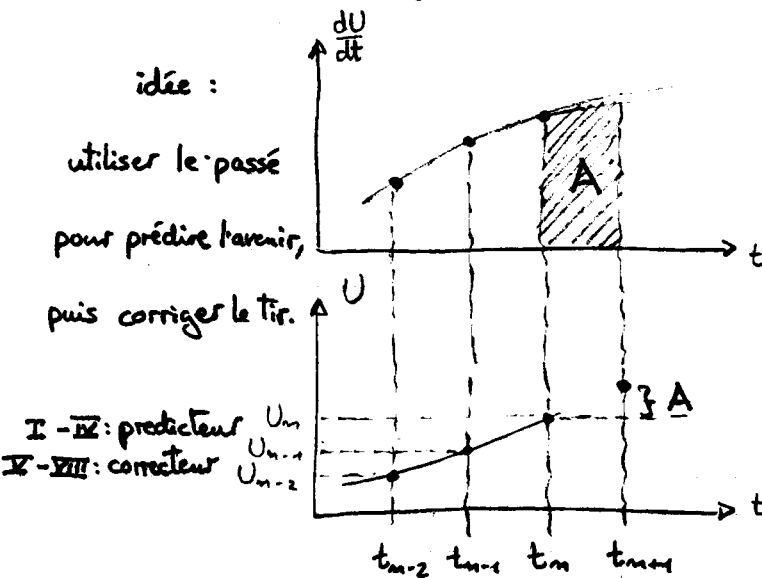 dU
dt
idée :
utiliser le passé
pour prédire l'avenir,
puis corriger le tir.
A
t
U
I - IV : predicteur
V - VIII : correcteur
Un
Un-1
Un-2
} A
t
tn-2 tn-1 tn tn+1